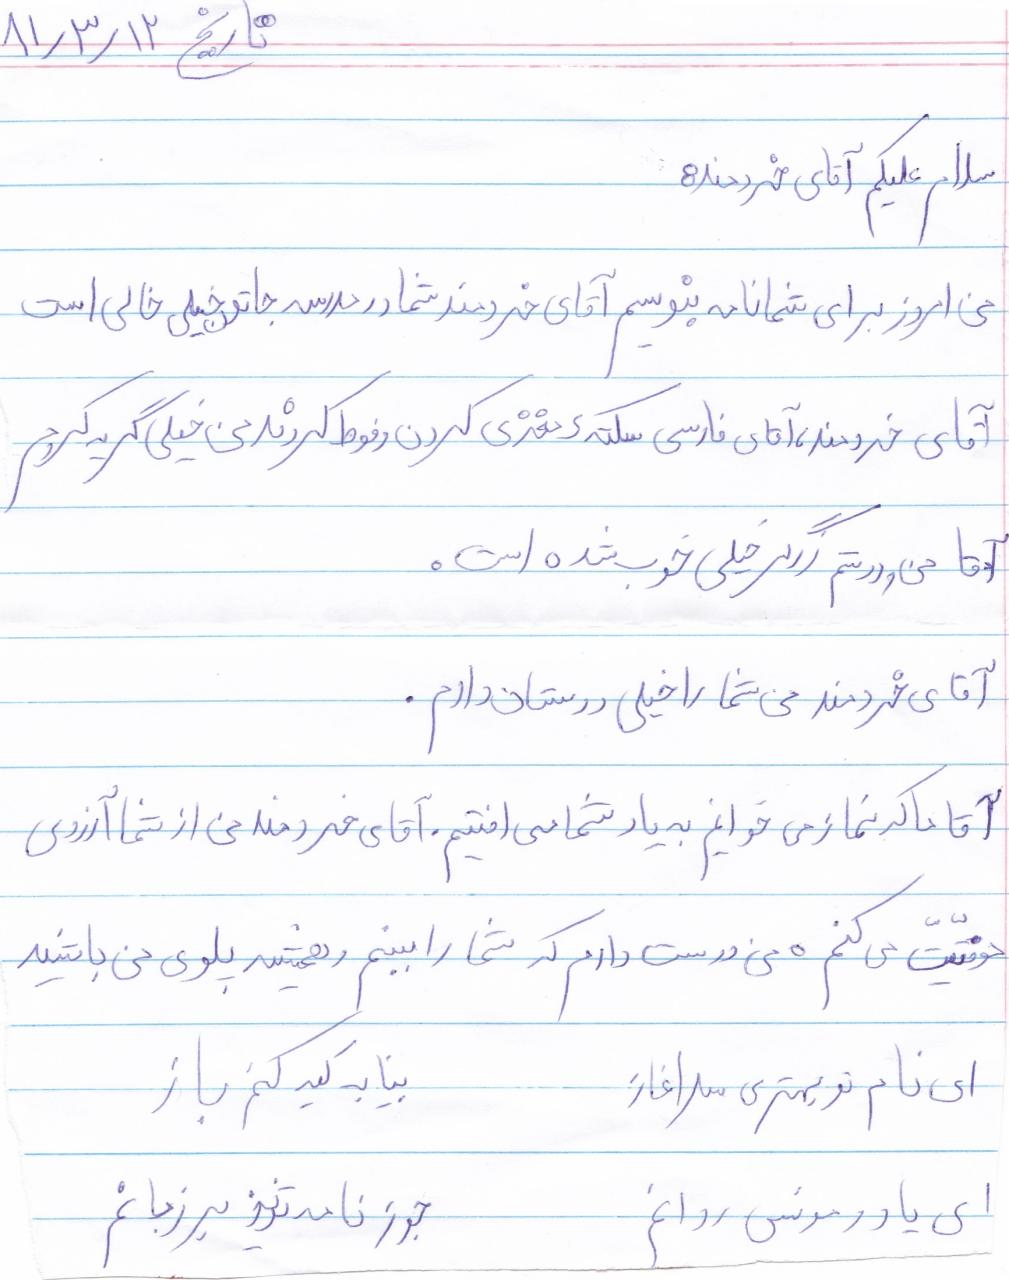 تاریخ ۸۱٫۳٫۱۲
سلام علیکم آقای خردمند
من امروز برای شما نامه بنویسم آقای خردمند شما در مدرسه جاتون خیلی خالی است
آقای خردمند، آقای فارسی سکته مغزی کردن و فوط کردند من خیلی گریه کردم
آقا من ورزشم خیلی خوب شده است.
آقای خردمند من شما را خیلی دوستان دارم.
آقا ما که نماز می خوانیم به یاد شما می افتیم. آقای خردمند من از شما آرزوی
موفقیّت می کنم. من دوست دارم که شما را ببینم و همیشه پلوی من باشید
ای نام تو بهتری سراغاز بینا به کنم باز
ای یاد و مونس روانم جوز نامه تو برزبانم